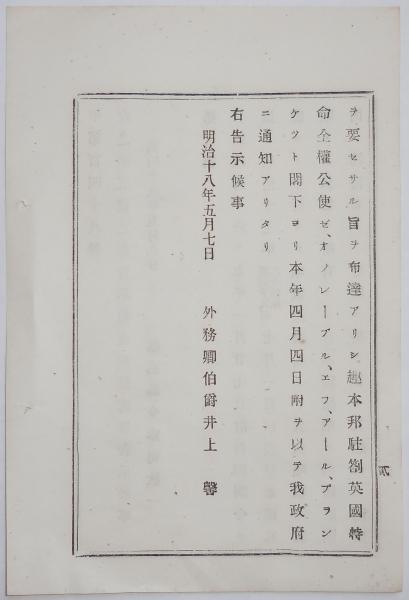 ヲ要セサル旨ヲ布達アリシ趣本邦駐劄英國特
命全權公使ゼ、オノレーブル、エフ、アール、プラン
ケツト閣下ヨリ本年四月四日附ヲ以テ我政府
ニ通知アリタリ
右告示候事
明治十八年五月七日
外務卿伯爵井上馨
貳